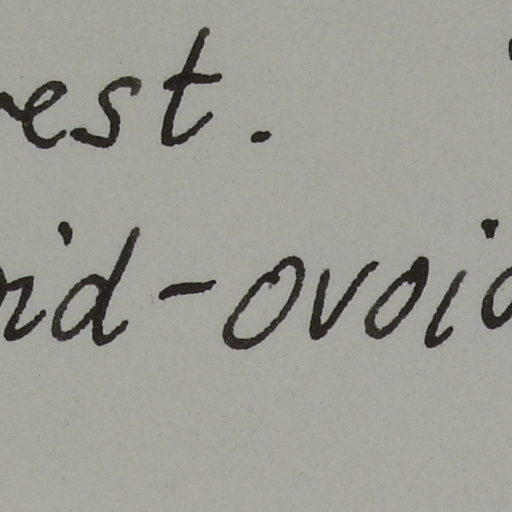 rest.
id-ovoid